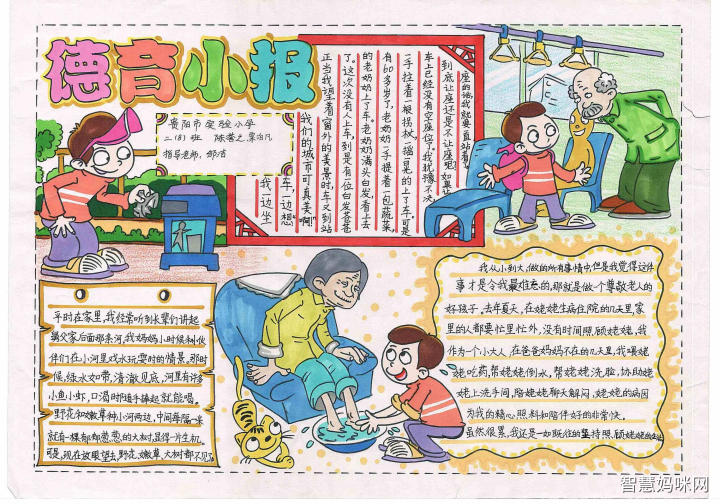 德育小报
贵阳市实验小学
二(8)班
指导老师:邵洁
我一边坐
车,一边想:
我们的城市可真美啊!
正当我望着窗外的美景时,车又到站
了。这次没有人上车,到是有位白发苍苍
的老奶奶上了车。老奶奶满头白发,看上去
有60多岁了,老奶奶一手提着一包蔬菜,
一手拄着一根拐杖,摇摇晃晃的上了车。可是
车上已经没有空座位了,我犹豫不决
到底让座还是不让座呢?如果让
座的话,我就要一直站着了。
平时在家里,我经常听到长辈们讲起
黔灵后面那条河,我妈妈小时候和伙
伴们在小河里戏水玩耍时的情景,那时
候,绿水如带,清澈见底,河里有许多
小鱼小虾,口渴时随手捧起就能喝。
野花和嫩草种小河两边,中间每隔一米
就有一棵郁郁葱葱的大树,显得一片生机,
可是,现在放眼望去,野花、嫩草、大树都不见了
我从小到大,做的所有事情中但是我觉得这件
事才是令我最难忘的,那就是做个尊敬老人的
好孩子,去年夏天,在姥姥生病住院的几天里,家
里的人都要忙里忙外,没有时间照顾姥姥,我
作为一个小大人,在爸爸妈妈不在的几天里,我喂姥
姥吃药,帮姥姥倒水,帮姥姥洗脸,协助姥
姥上洗手间,陪姥姥聊天解闷,姥姥的病因
为我的精心照料和陪伴好的非常快。
虽然很累,我还是一如既往的坚持照顾姥姥
智慧妈咪网